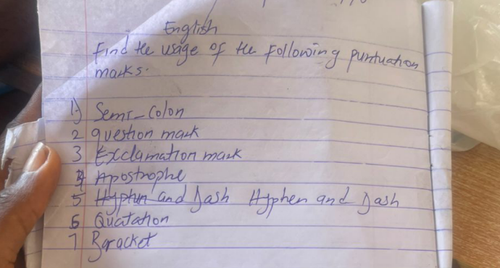 English
Find the usage of the following puntuation
marks.
1) Semi-colon
2 question mark
3 Exclamation mark
4 Apostrophe
5 Hyphen and Dash Hyphen and Dash
6 Quatation
7 Baracket